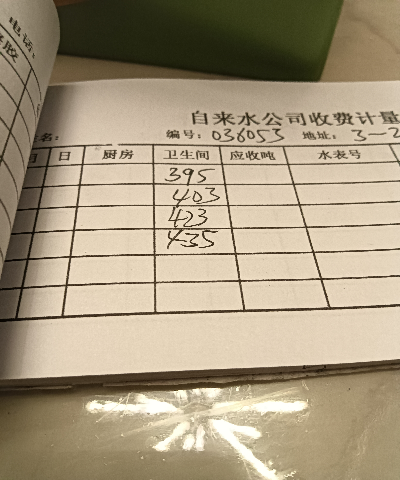 电话:
自来水公司收费计量
姓名: 编号: 036053 地址: 3-2
月 日 厨房 卫生间 应收吨 水表号
395
403
423
435